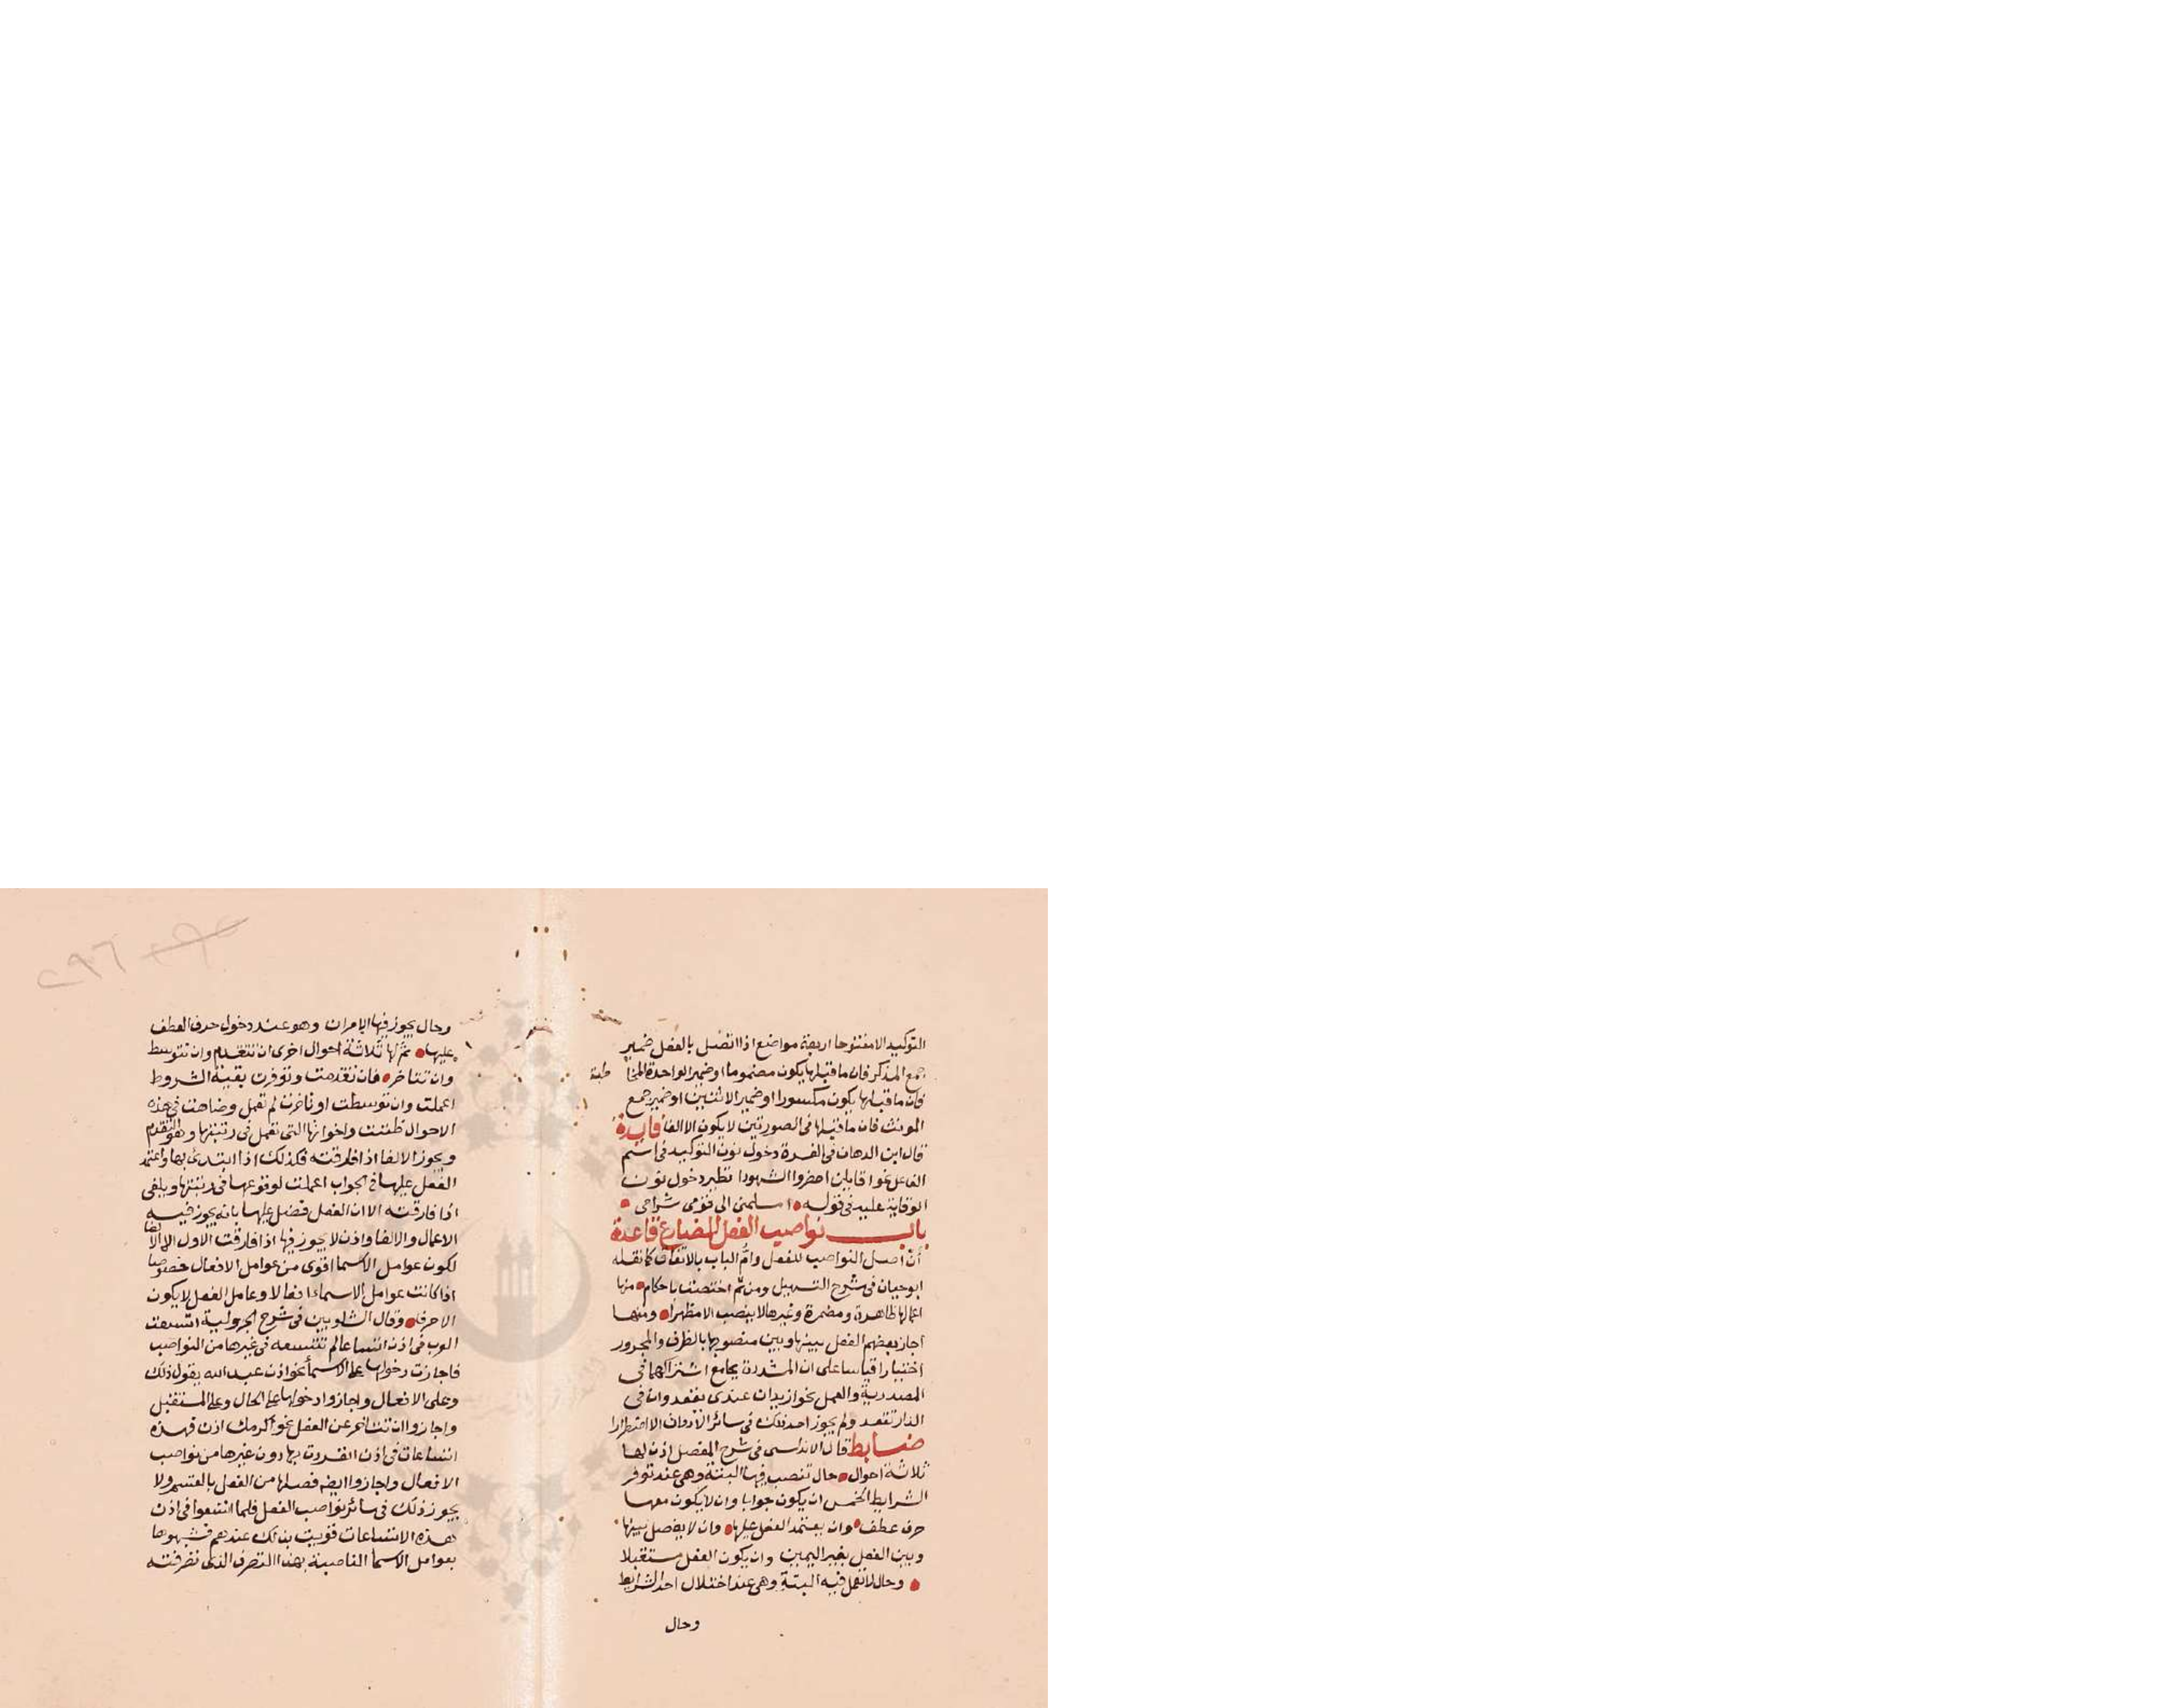 التوكيد الا مفتوحا اربعة مواضع اذا اتصل بالفعل ضمير
جمع المذكر فان ما قبلها يكون مضموما او ضمير الواحدة المخا
طبة
فان ما قبلها يكون مكسورا او ضمير الاثنين او ضمير جمع
المونث فان ما قبلها في الصورتين لا يكون الا الفا فايدة
قال ابن الدهان في الغرة دخول نون التوكيد في اسم
الفاعل نحو اقايلن احضروا الشهودا نظير دخول نون
الوقاية عليه في قوله امسلمني الى قومي شراحي
باب نواصب الفعل المضارع قاعدة
أن اصل النواصب للفعل وام الباب بالاتفاق كما نقله
ابو حيان في شرح التسهيل ومن ثم اختصت باحكام منها
اعمالها ظاهرة ومضمرة وغيرها لا ينصب الا مظهرا ومنها
اجاز بعضهم الفصل بينها وبين منصوبها بالظرف والمجرور
اختيارا قياسا على ان المشددة بجامع اشتراكهما في
المصدرية والعمل نحو اريد ان عندى تقعد وان في
الدار تقعد ولم يجوز احد ذلك في سائر الادوات الا اضطرارا
ضابط قال الاندلسي في شرح المفصل اذن لها
ثلاثة احوال حال تنصب فيها البتة وهي عند توفر
الشرايط الخمس ان يكون جوابا وان لا يكون معها
حرف عطف وان يعتمد الفعل عليها وان لا يفصل بينها
وبين الفعل بغير اليمين وان يكون الفعل مستقبلا
وحال لا تعمل فيه البتة وهي عند اختلال احد الشرايط
وحال
وحال يجوز فيها الامران وهو عند دخول حرف العطف
عليها ثم لها ثلاثة احوال اخرى ان تتقدم وان تتوسط
وان تتاخر فان تقدمت وتوفرت بقية الشروط
اعملت وان توسطت او تاخرت لم تعمل وضاهت في هذه
الاحوال ظننت واخواتها التي تعمل في رتبتها وهو التقدم
ويجوز الالغا اذا فارقته فكذلك اذا ابتدى بها واعتمد
الفعل عليها في الجواب اعملت لوقوعها في رتبتها ويلغى
اذا فارقته الا ان الفعل فضل عليها بانه يجوز فيه
الاعمال والالغا واذن لا يجوز فيها اذا فارقت الاول الا الالغا
لكون عوامل الاسما اقوى من عوامل الافعال خصوصا
اذا كانت عوامل الاسماء افعالا وعامل الفعل لا يكون
الا حرفا وقال الشلوبين في شرح الجزولية اتسعت
العرب في اذن اتساعا لم تتسعه في غيرها من النواصب
فاجازت دخولها على الاسما نحو اذن عبد الله يقول ذلك
وعلى الافعال واجازوا دخولها على الحال وعلى المستقبل
واجازوا ان تتاخر عن الفعل نحو اكرمك اذن فهذه
اتساعات في اذن انفردت بها دون غيرها من نواصب
الافعال واجازوا ايضه فصلها من الفعل بالقسم ولا
يجوز ذلك في سائر نواصب الفعل فلما اتسعوا في اذن
هذه الاتساعات قويت بذلك عندهم فشبهوها
بعوامل الاسما الناصبة بهذا التصرف الذى تصرفته
٢٩٦